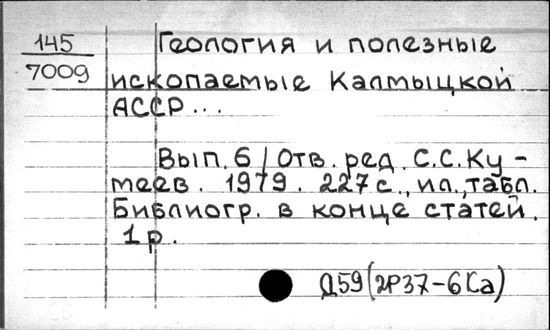 145
7009
Геология и полезные
ископаемые Калмыцкой
АССР...
Вып. 6 / Отв. ред. С.С.Ку-
теев. 1979. 227 с., ил., табл.
Библиогр. в конце статей.
1 р.
Д59(2Р37-6Са)